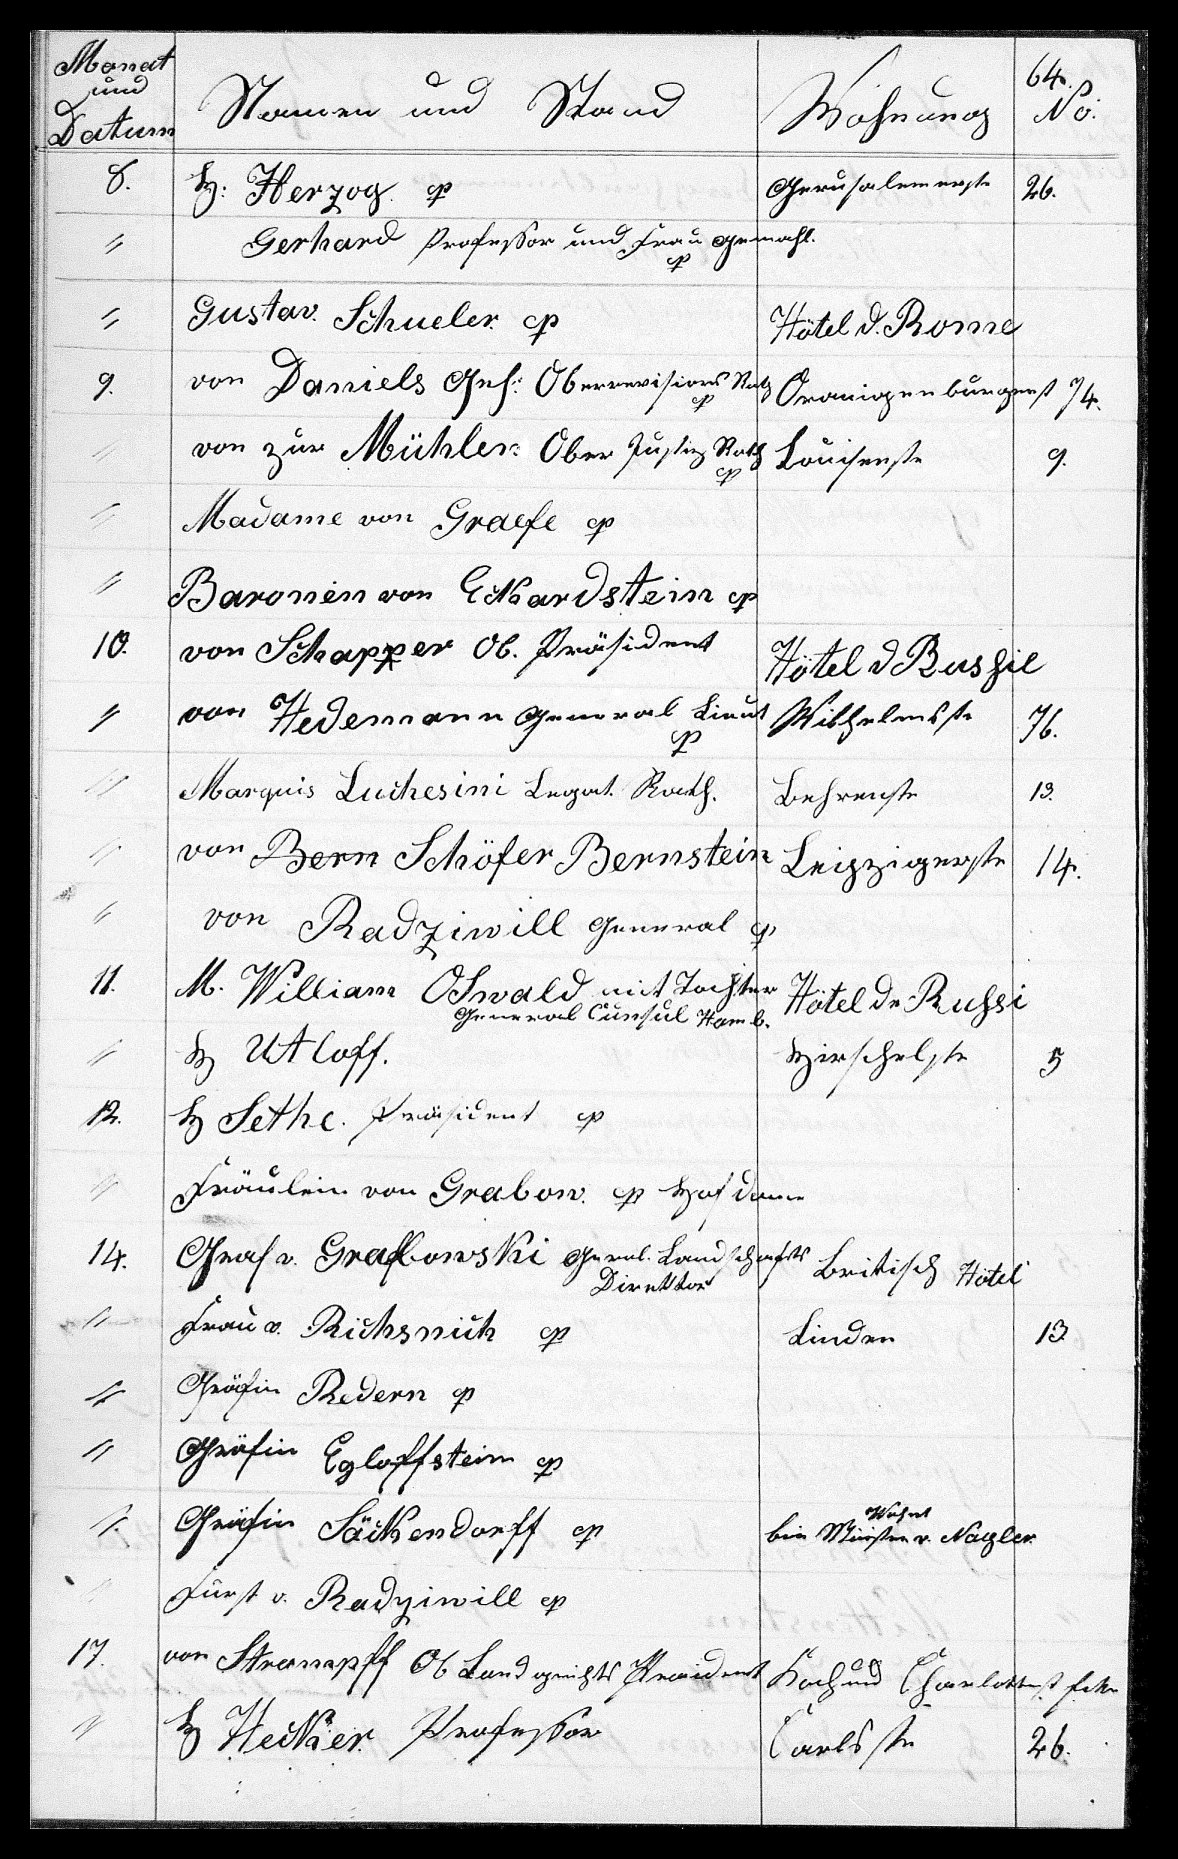 64.
Monat und Datum Namen und Stand Wohnung No:
8. H: Herzog. cp Gerusalemerste 26.
" Gerhard Professor und Frau Gemahl. cp
" Gustav. Schueler. cp Hôtel d. Rome
9. von Daniels Geh: Oberrevisions Rath cp Oranigenburgerst 74.
" von zur Mühlen: Ober Justiz Rath cp Louisenste 9.
" Madame von Graefe cp
" Baronin von Eckardstein cp
10. von Schapper Ob. Präsident Hôtel d Russie
" von Hedemann General Lieut cp Wilhelmste 76.
" Marquis Luchesini Legat. Rath. Behrenste 13.
" von Bern Schöfer Bernstein Leipzigerste 14.
" von Radziwill General cp
11. M. William OSwald mit Tochter Hôtel de Russi
General Cunsul Hamb.
" H Utloff. Hirschelste 5
12. H Sethe. Präsident cp
" Fräulein von Grabow. cp Hof dame
14. Graf v. Grabowski Genral. Landschafts Direktor Britisch Hôtel
" Frau v. Richsnich cp Linden 13
" Gräfin Redern cp
" Gräfin Egloffstein cp
" Gräfin Säckendorff cp Wohnt bei Minister v. Nagler.
" Fürst v. Radziwill cp
17. von Strampff Ob Land gerichts Präident Koch und Charlottenst Ecke
" H Hecker. Professor Carls ste 26.